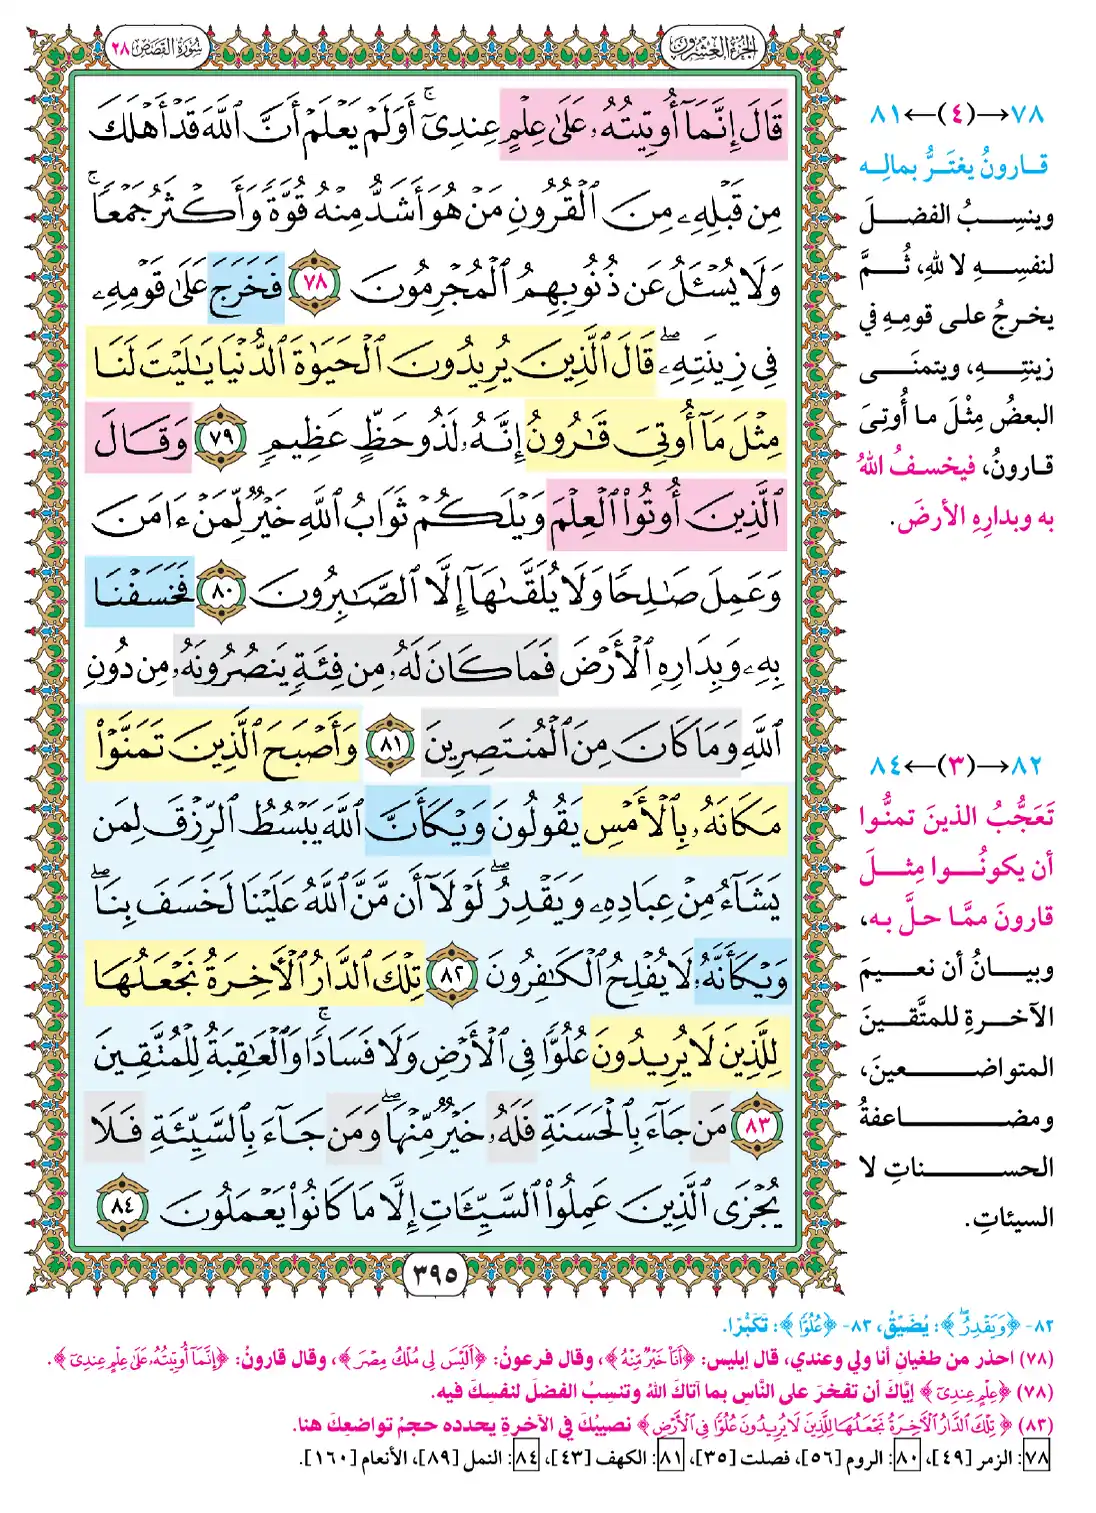 الجزء العشرون
سورة القصص ٢٨
قَالَ إِنَّمَآ أُوتِيتُهُۥ عَلَىٰ عِلْمٍ عِندِيٓ ۚ أَوَلَمْ يَعْلَمْ أَنَّ ٱللَّهَ قَدْ أَهْلَكَ
مِن قَبْلِهِۦ مِنَ ٱلْقُرُونِ مَنْ هُوَ أَشَدُّ مِنْهُ قُوَّةً وَأَكْثَرُ جَمْعًا ۚ
وَلَا يُسْـَٔلُ عَن ذُنُوبِهِمُ ٱلْمُجْرِمُونَ ٧٨ فَخَرَجَ عَلَىٰ قَوْمِهِۦ
فِي زِينَتِهِۦ ۖ قَالَ ٱلَّذِينَ يُرِيدُونَ ٱلْحَيَوٰةَ ٱلدُّنْيَا يَٰلَيْتَ لَنَا
مِثْلَ مَآ أُوتِيَ قَٰرُونُ إِنَّهُۥ لَذُو حَظٍّ عَظِيمٍ ٧٩ وَقَالَ
ٱلَّذِينَ أُوتُوا۟ ٱلْعِلْمَ وَيْلَكُمْ ثَوَابُ ٱللَّهِ خَيْرٌ لِّمَنْ ءَامَنَ
وَعَمِلَ صَٰلِحًا وَلَا يُلَقَّىٰهَآ إِلَّا ٱلصَّٰبِرُونَ ٨٠ فَخَسَفْنَا
بِهِۦ وَبِدَارِهِ ٱلْأَرْضَ فَمَا كَانَ لَهُۥ مِن فِئَةٍ يَنصُرُونَهُۥ مِن دُونِ
ٱللَّهِ وَمَا كَانَ مِنَ ٱلْمُنتَصِرِينَ ٨١ وَأَصْبَحَ ٱلَّذِينَ تَمَنَّوْا۟
مَكَانَهُۥ بِٱلْأَمْسِ يَقُولُونَ وَيْكَأَنَّ ٱللَّهَ يَبْسُطُ ٱلرِّزْقَ لِمَن
يَشَآءُ مِنْ عِبَادِهِۦ وَيَقْدِرُ ۖ لَوْلَآ أَن مَّنَّ ٱللَّهُ عَلَيْنَا لَخَسَفَ بِنَا ۖ
وَيْكَأَنَّهُۥ لَا يُفْلِحُ ٱلْكَٰفِرُونَ ٨٢ تِلْكَ ٱلدَّارُ ٱلْأَخِرَةُ نَجْعَلُهَا
لِلَّذِينَ لَا يُرِيدُونَ عُلُوًّا فِي ٱلْأَرْضِ وَلَا فَسَادًا ۚ وَٱلْعَٰقِبَةُ لِلْمُتَّقِينَ
٨٣ مَن جَآءَ بِٱلْحَسَنَةِ فَلَهُۥ خَيْرٌ مِّنْهَا ۖ وَمَن جَآءَ بِٱلسَّيِّئَةِ فَلَا
يُجْزَى ٱلَّذِينَ عَمِلُوا۟ ٱلسَّيِّـَٔاتِ إِلَّا مَا كَانُوا۟ يَعْمَلُونَ ٨٤
٣٩٥
٧٨→(٤)←٨١
قارونُ يغترُّ بمالِه
وينسِبُ الفضلَ
لنفسِهِ لا للهِ، ثُمَّ
يخرجُ على قومِهِ في
زينتِهِ، ويتمنَّى
البعضُ مِثْلَ ما أُوتِيَ
قارونُ، فيخسفُ اللهُ
به وبدارِهِ الأرضَ.
٨٢→(٣)←٨٤
تَعَجُّبُ الذينَ تمنُّوا
أن يكونُوا مِثلَ
قارونَ ممَّا حلَّ به،
وبيانُ أن نعيمَ
الآخرةِ للمتَّقينَ
المتواضعينَ،
ومضاعفةُ
الحسناتِ لا
السيئاتِ.
٨٢- ﴿وَيَقْدِرُ ۖ﴾: يُضَيِّقُ، ٨٣- ﴿عُلُوًّا﴾: تَكَبُّرًا.
(٧٨) احذر من طغيان أنا ولي وعندي، قال إبليس: ﴿أَنَا۠ خَيْرٌ مِّنْهُ﴾، وقال فرعونُ: ﴿أَلَيْسَ لِي مُلْكُ مِصْرَ﴾، وقال قارونُ: ﴿إِنَّمَآ أُوتِيتُهُۥ عَلَىٰ عِلْمٍ عِندِيٓ﴾.
(٧٨) ﴿عِلْمٍ عِندِيٓ﴾ إيَّاكَ أن تفخرَ على النَّاسِ بما آتاكَ اللهُ وتنسِبُ الفضلَ لنفسِكَ فيه.
(٨٣) ﴿تِلْكَ ٱلدَّارُ ٱلْأَخِرَةُ نَجْعَلُهَا لِلَّذِينَ لَا يُرِيدُونَ عُلُوًّا فِي ٱلْأَرْضِ﴾ نصيبُكَ في الآخرةِ يحدده حجمُ تواضعِكَ هنا.
٧٨: الزمر [٤٩]، ٨٠: الروم [٥٦]، فصلت [٣٥]، ٨١: الكهف [٤٣]، ٨٤: النمل [٨٩]، الأنعام [١٦٠].